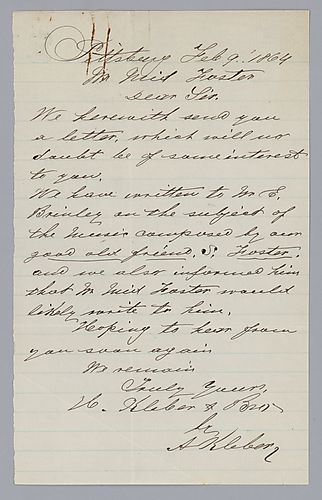 Pittsburg Feb 9. 1864
Mr Mid Foster
Dear Sir.
We herewith send you
a letter, which will no
doubt be of some interest
to you.
We have written to Mr E.
Brinley on the subject of
the Music composed by our
good old friend, S. Foster,
and we also informed him
that Mr Mid Foster would
likely write to him.
Hoping to hear from
you soon again
We remain
Truly Yours,
H. Kleber & Bro
by
A Kleber